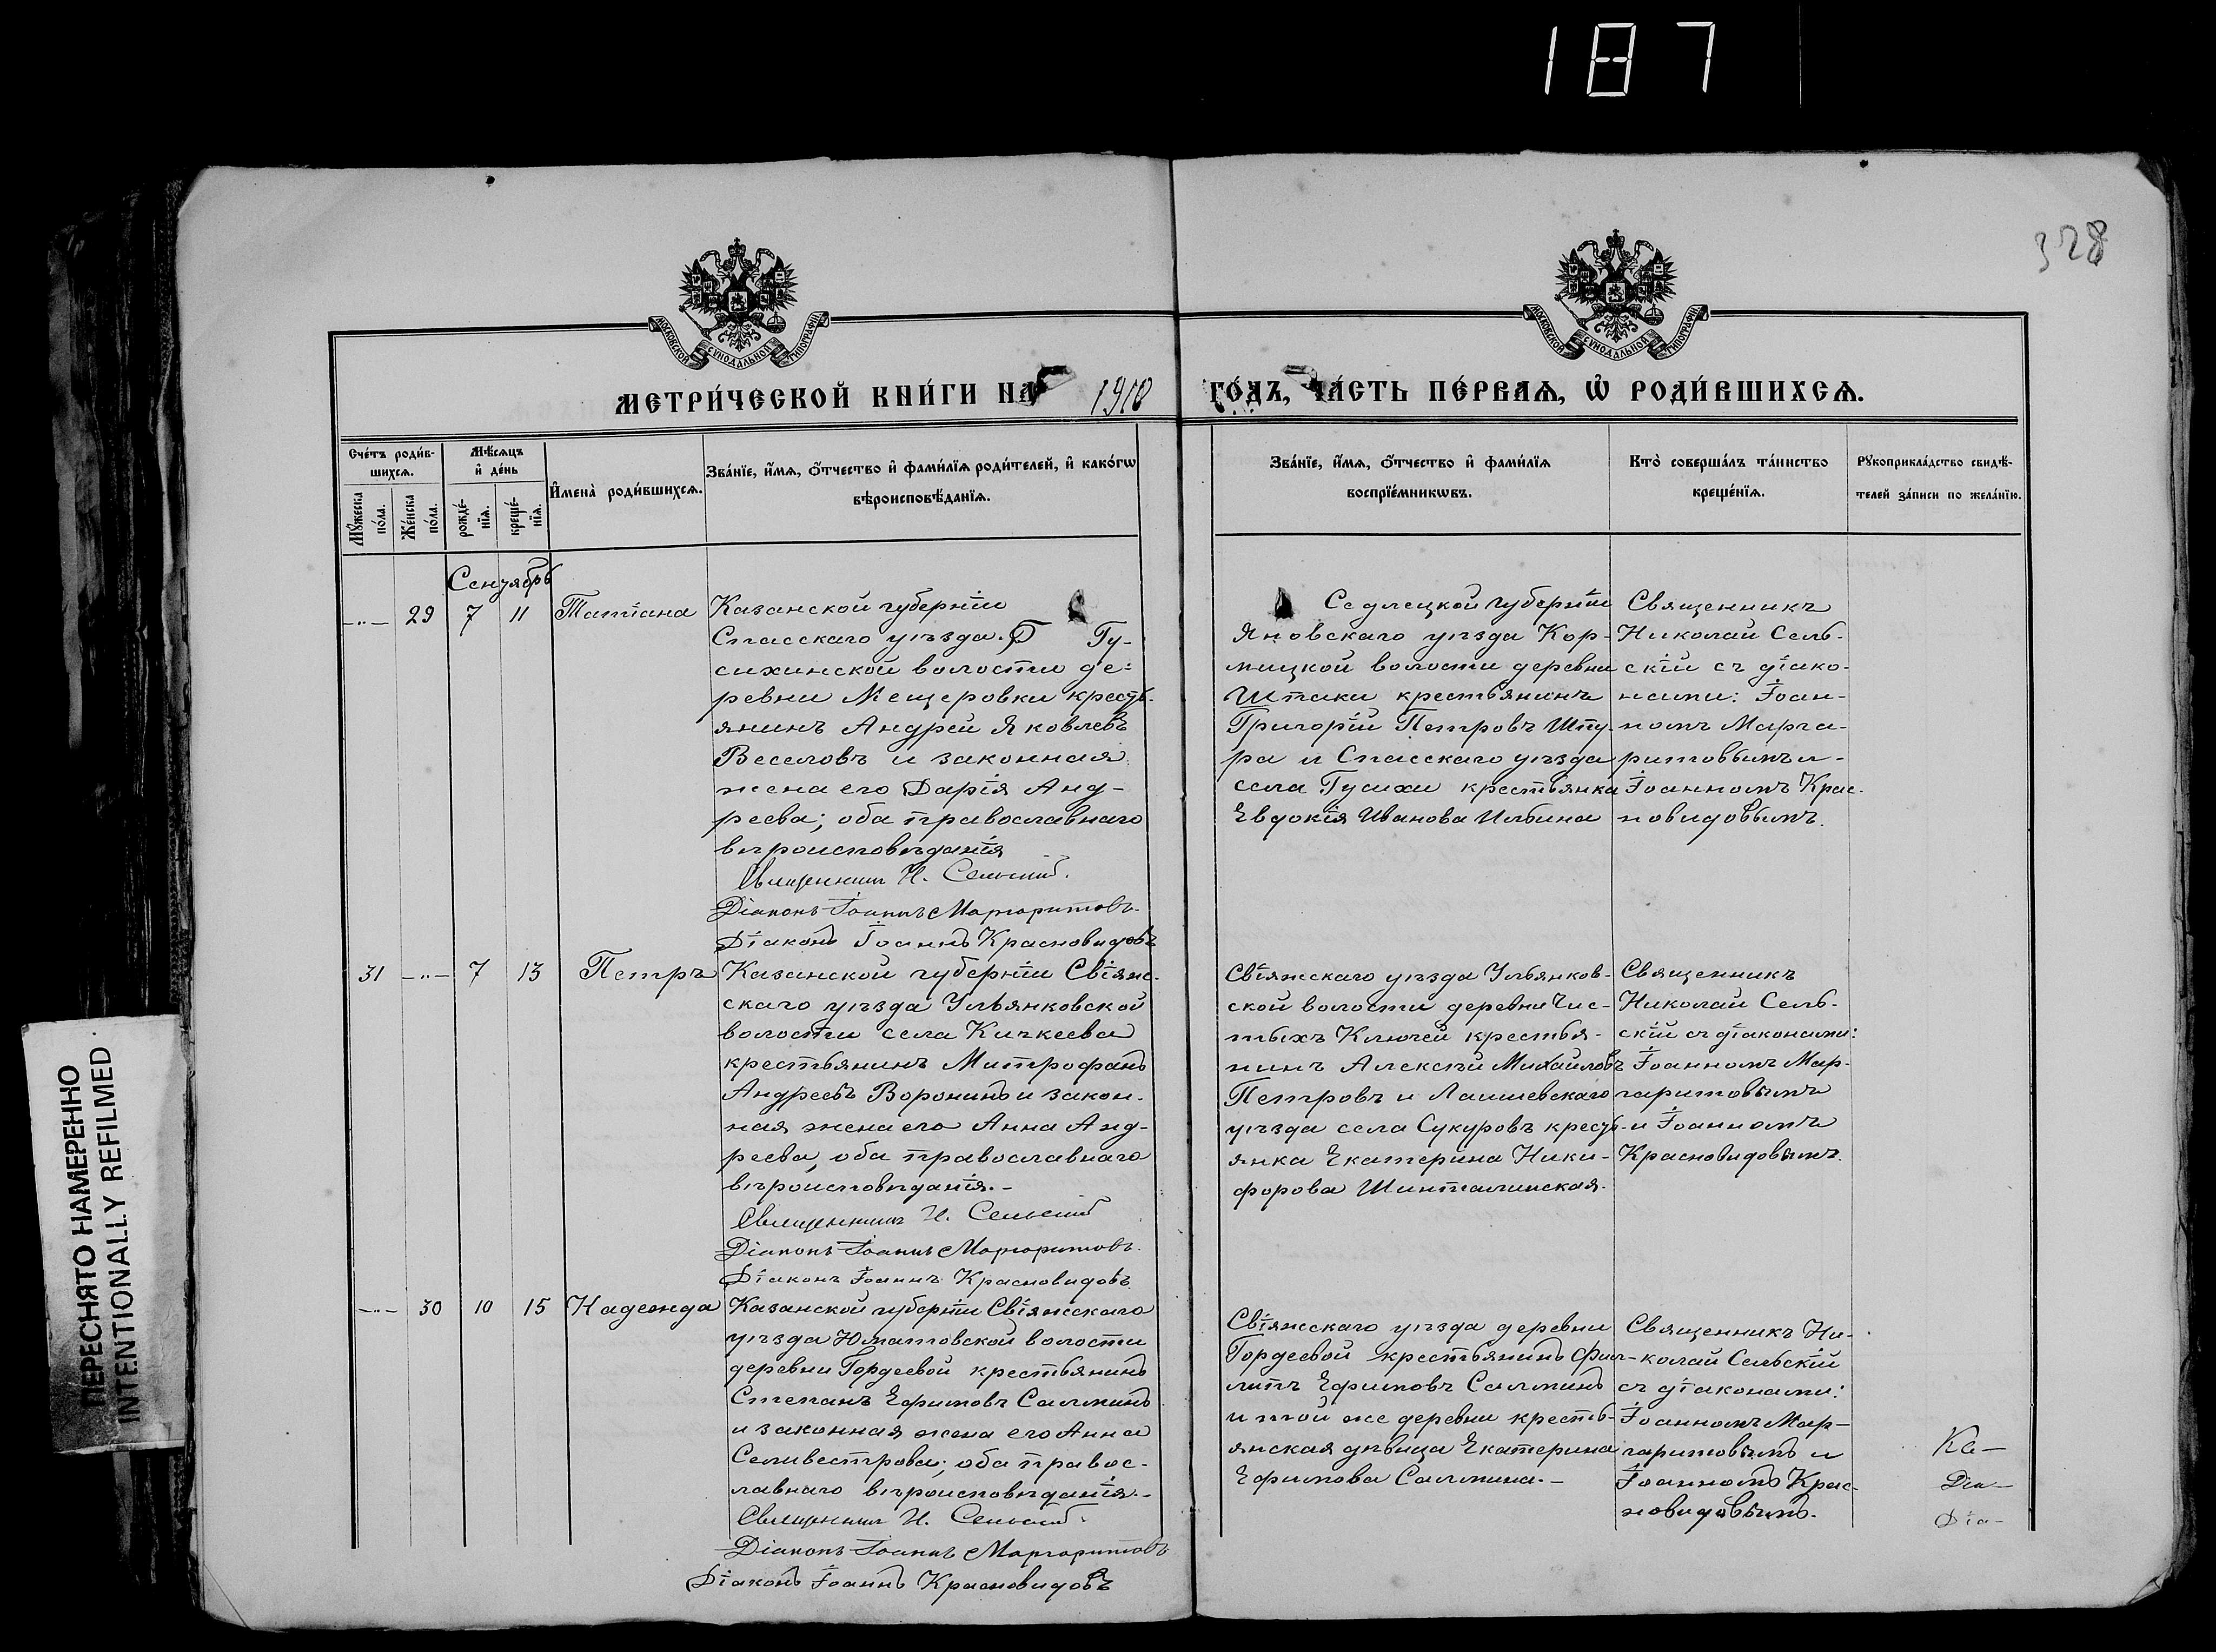 187
328
МОСКОВСКОЙ СѴНОДАЛЬНОЙ ТИПОГРАФІИ
МОСКОВСКОЙ СѴНОДАЛЬНОЙ ТИПОГРАФІИ
МЕТРИ́ЧЕСКОЙ КНИ́ГИ НА 1910 ГО́ДЪ, ЧА́СТЬ ПЕ́РВАѦ, Ѡ҆ РОДИ́ВШИХСѦ.
Сче́тъ роди́в-
шихсѧ.
Мꙋ́жеска
по́ла.
Же́нска
по́ла.
Мѣ́сѧцъ
и҆ де́нь
рожде́-
нїѧ.
креще́-
нїѧ.
И҆мена̀ роди́вшихсѧ.
Зва́нїе, и҆́мѧ, ѻ҆́тчество и҆ фами́лїѧ роди́телей, и҆ како́гѡ
вѣроисповѣ́данїѧ.
Зва́нїе, и҆́мѧ, ѻ҆́тчество и҆ фами́лїѧ
воспрїе́мникѡвъ.
Кто̀ соверша́лъ та́инство
креще́нїѧ.
Рꙋкоприкла́дство свидѣ́-
телей за́писи по жела́нїю.
Сентябрь
-"- 29 7 11 Татіана
Казанской губерніи
Спасскаго уѣзда. Гу-
сихинской волости де-
ревни Мещеровки кресть-
янинъ Андрей Яковлевъ
Веселовъ и законная
жена его Дарія Анд-
реева; оба православнаго
вѣроисповѣданія
Священникъ Н. Сельскій.
Діаконъ Іоаннъ Маргаритовъ.
Діаконъ Іоаннъ Красновидовъ
Седлецкой губерніи
Яновскаго уѣзда Кор-
ницкой волости деревни
Штаки крестьянинъ
Григорій Петровъ Шту-
ра и Спасскаго уѣзда
села Гусихи крестьянка
Евдокія Иванова Ильина
Священникъ
Николай Сель-
скій съ діако-
нами: Іоан-
номъ Марга-
ритовымъ и
Іоанномъ Крас-
новидовымъ.
31 -"- 7 13 Петръ
Казанской губерніи Свіяж-
скаго уѣзда Ульянковской
волости села Кичкеева
крестьянинъ Митрофанъ
Андреевъ Воронинъ и закон-
ная жена его Анна Анд-
реева, оба православнаго
вѣроисповѣданія.-
Священникъ Н. Сельскій
Діаконъ Іоаннъ Маргаритовъ.
Діаконъ Іоаннъ Красновидовъ
Свіяжскаго уѣзда Ульянков-
ской волости деревни Чис-
тыхъ Ключей крестья-
нинъ Алексѣй Михайловъ
Петровъ и Лаишевскаго
уѣзда села Сукуровъ кресть-
янка Екатерина Ники-
форова Шинталинская.
Священникъ
Николай Сель-
скій съ діаконами:
Іоанномъ Мар-
гаритовымъ
и Іоанномъ
Красновидовымъ.
-"- 30 10 15 Надежда
Казанской губерніи Свіяжскаго
уѣзда Юматовской волости
деревни Гордеевой крестьянинъ
Степанъ Ефимовъ Салминъ
и законная жена его Анна
Селивестрова; оба правос-
лавнаго вѣроисповѣданія.-
Священникъ Н. Сельскій.
Діаконъ Іоаннъ Маргаритовъ
Діаконъ Іоаннъ Красновидовъ
Свіяжскаго уѣзда деревни
Гордеевой крестьянинъ Фи-
липъ Ефимовъ Салминъ
и той же деревни кресть-
янская дѣвица Екатерина
Ефимова Салмина.-
Священникъ Ни-
колай Сельскій
съ діаконами:
Іоанномъ Мар-
гаритовымъ и
Іоанномъ Крас-
новидовымъ.
Ка-
Діа-
Діа-
ПЕРЕСНЯТО НАМЕРЕННО
INTENTIONALLY REFILMED